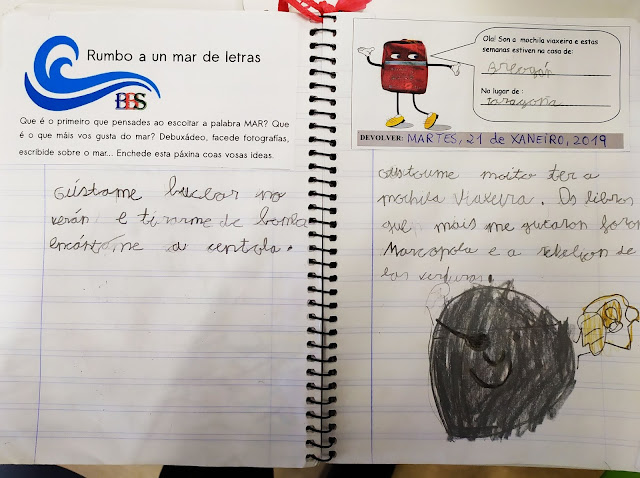 Rumbo a un mar de letras
BBS
Que é o primeiro que pensades ao escoitar a palabra MAR? Que
é o que máis vos gusta do mar? Debuxádeo, facede fotografías,
escribide sobre o mar... Enchede esta páxina coas vosas ideas.
Gústame bucear no
verán e tirarme de bomba
encántame a centola.
Ola! Son a mochila viaxeira e estas
semanas estiven na casa de:
Breogán
No lugar de:
Taragoña
DEVOLVER: MARTES, 21 de XANEIRO, 2019
Gustoume moito ter a
mochila viaxeira. Os libros
que mais me gutaron foron
Marcopola e a rebelion de
las verduras.